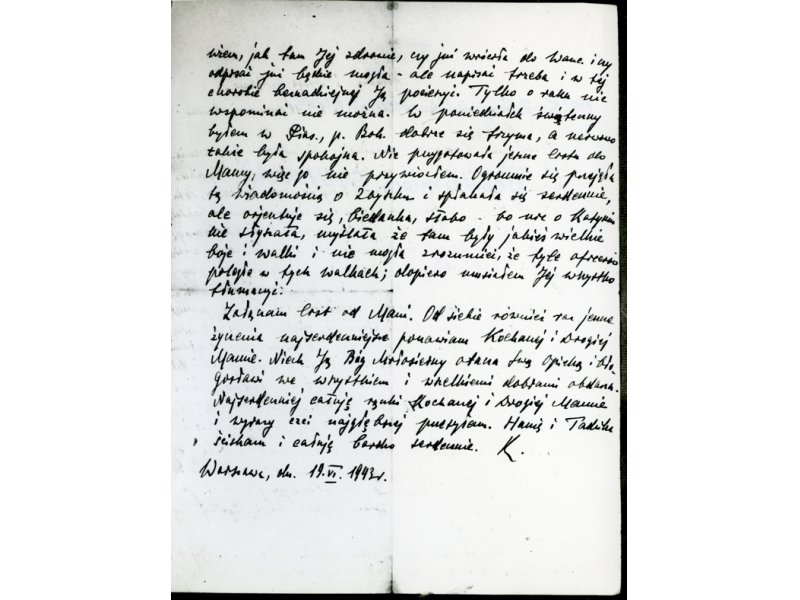 wiem, jak tam Jej zdrowie, czy już wróciła do Warsz. i czy
odpisać już będzie mogła - ale napisać trzeba i w tej
chorobie beznadziejnej Ją pocieszyć. Tylko o raku nic
wspominać nie można. W poniedziałek świąteczny
byłem w Pias., p. Boh. dobrze się trzyma, a nerwowo
także była spokojna. Nie przygotowała jeszcze listu do
Mamy, więc go nie przywiozłem. Ogromnie się przejęła
tą wiadomością o Zbyszku i spłakała się serdecznie,
ale orjentuje się, biedaczka, słabo - bo nic o Katyniu
nie słyszała, myślała że tam były jakieś wielkie
boje i walki i nie mogła zrozumieć, że tyle oficerów
poległo w tych walkach; dopiero musiałem Jej wszystko
tłumaczyć.
Załączam list od Mani. Od siebie również raz jeszcze
życzenia najserdeczniejsze ponawiam Kochanej i Drogiej
Mamie. Niech Ją Bóg Miłosierny otacza Swą Opieką i bło-
gosławi we wszystkiem i wszelkiemi dobrami obdarza.
Najserdeczniej całuję rączki Kochanej i Drogiej Mamie
i wyrazy czci najgłębszej przesyłam. Hanię i Tadzika
ściskam i całuję bardzo serdecznie. K.
Warszawa, dn. 19.VI.1943r.